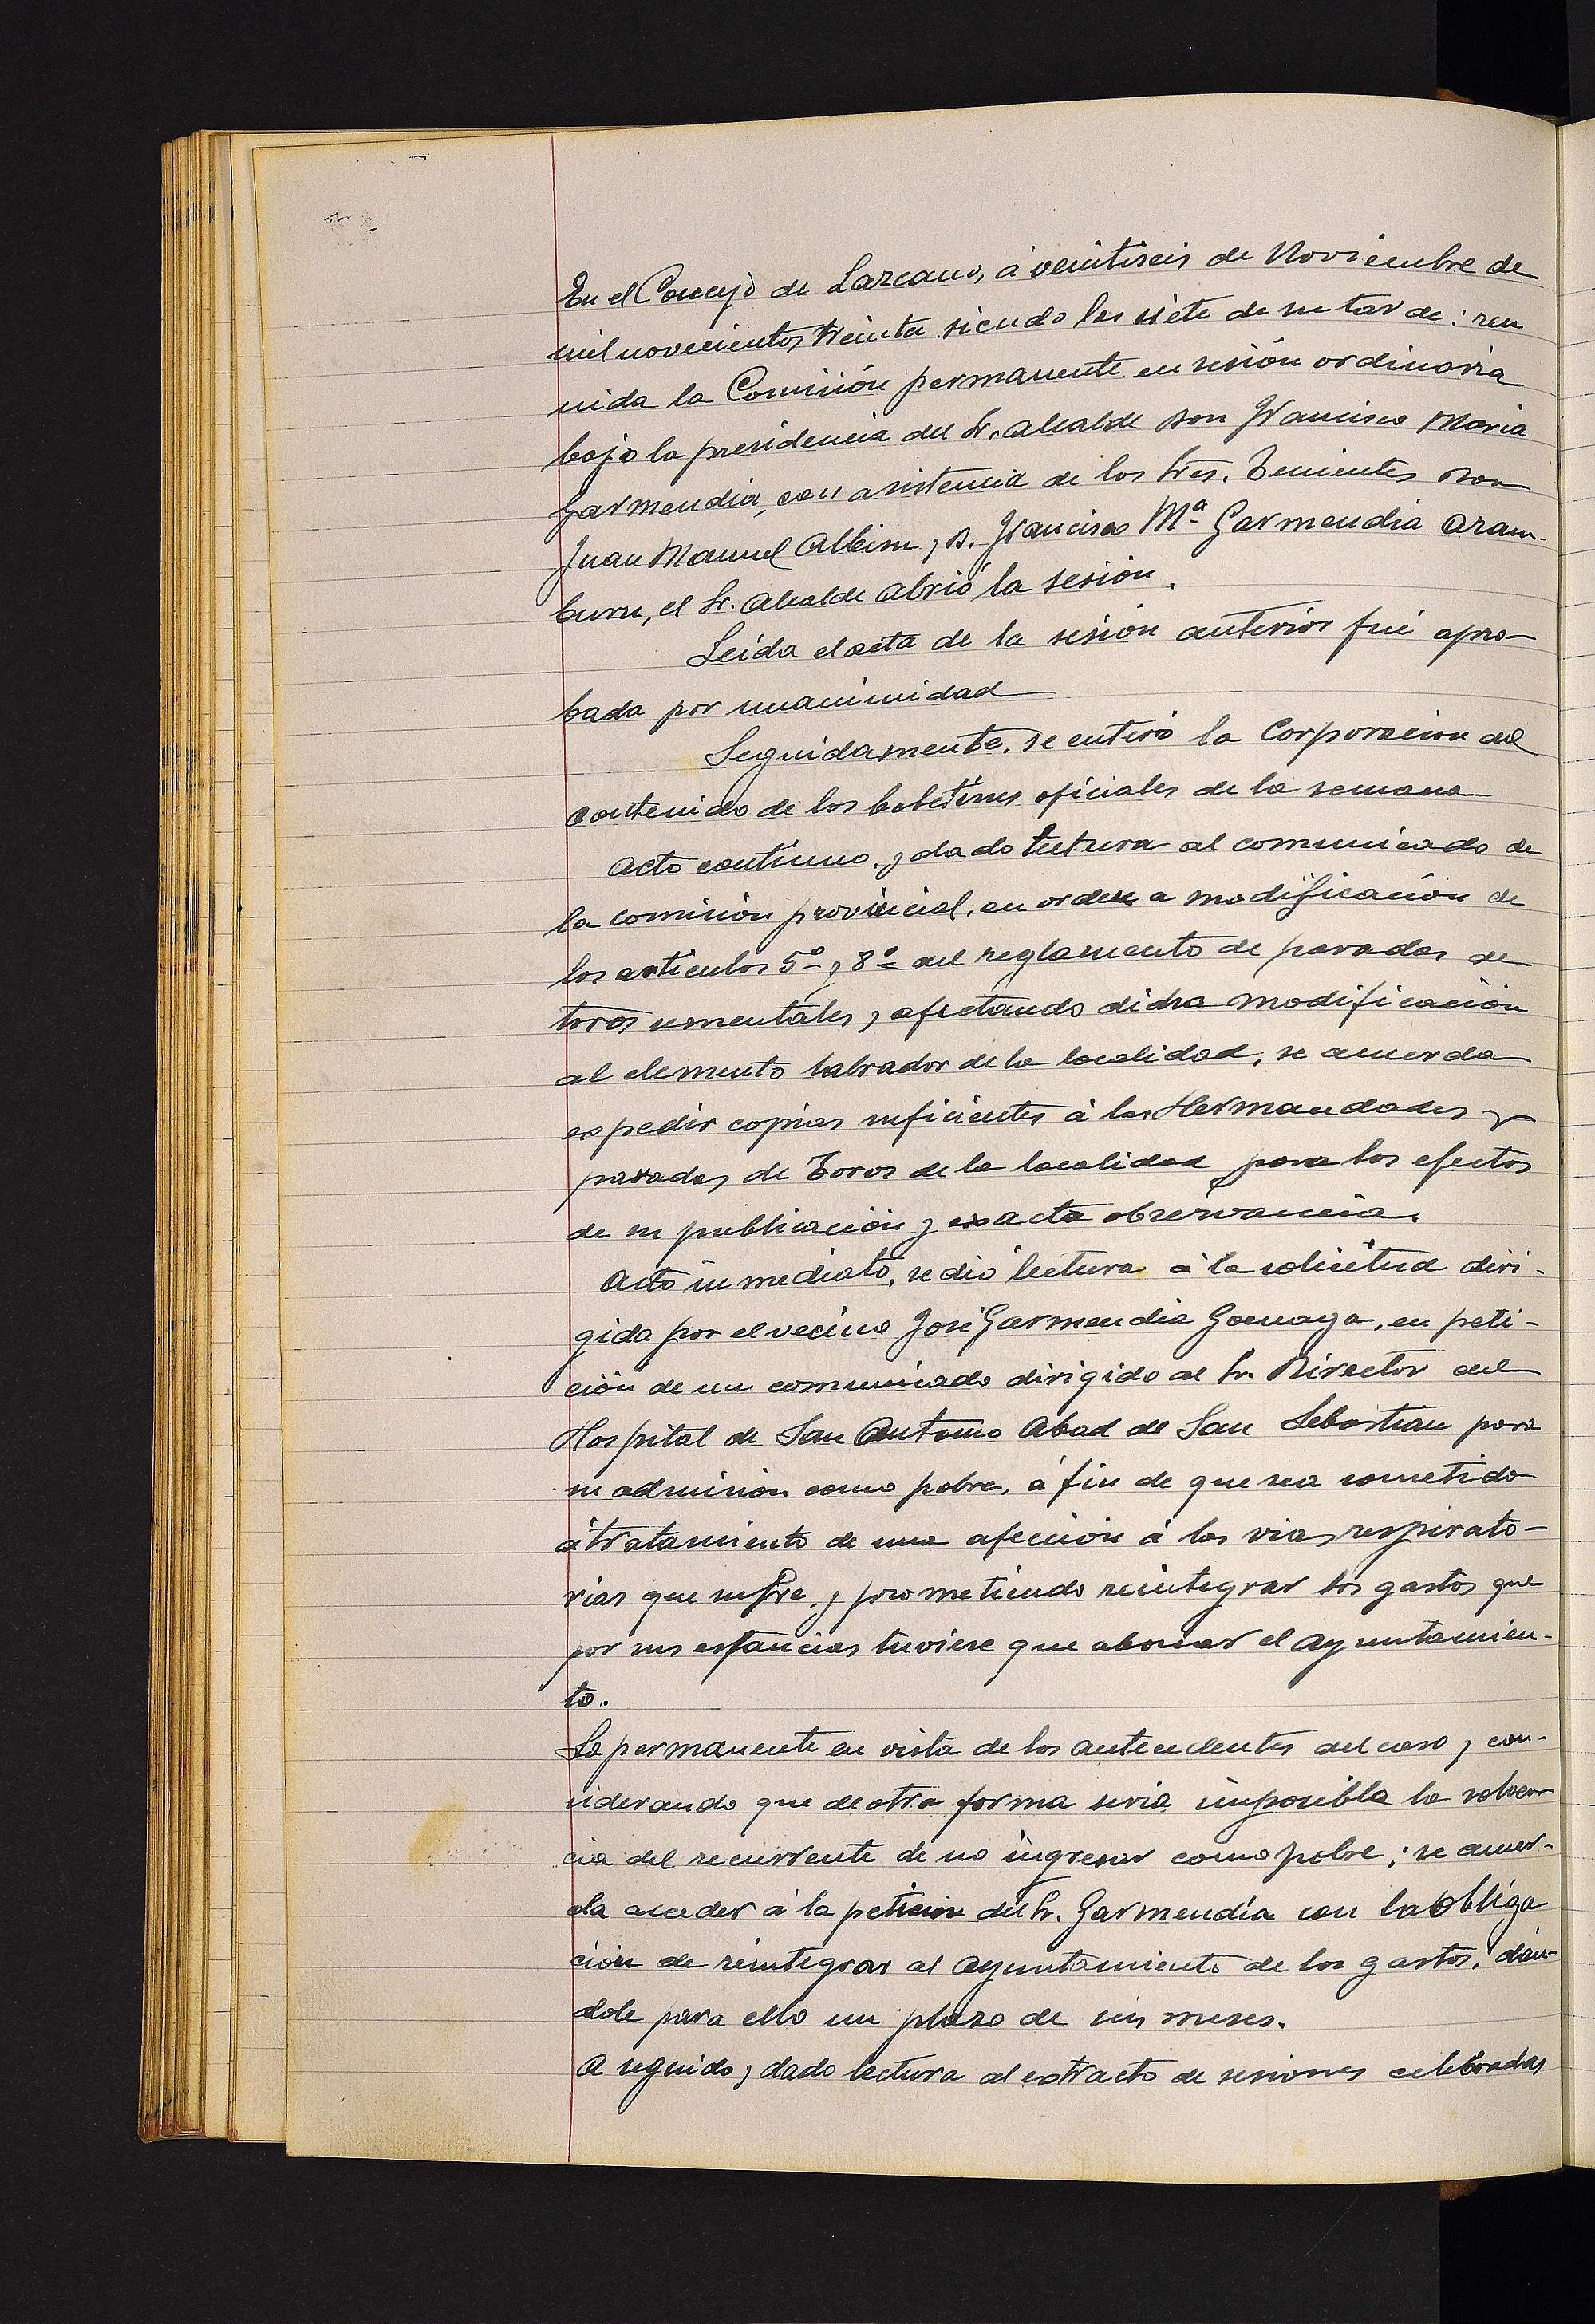 En el Concejo de Lazcano, á veintiseis de Noviembre de
mil novecientos treinta siendo las siete de su tarde: reu
nida la Comisión permanente en sesión ordinaria
bajo la presidencia del Sr. Alcalde Don Francisco Maria
Garmendia, con asistencia de los Sres. Tenientes Don
Juan Manuel Albisu y D. Francisco Mª Garmendia Aram-
buru, el Sr. Alcalde abrió la sesión.
Leida el acta de la sesión anterior fué apro-
bada por unanimidad
Seguidamente, se enteró la Corporación del
contenido de los boletines oficiales de la semana
Acto continuo, y dado lectura al comunicado de
la comisión provincial, en orden a modificación de
los articulos 5º y 8º del reglamento de paradas de
toros sementales, y afectando dicha modificación
al elemento labrador de la localidad, se acuerda
expedir copias suficientes á las Hermandades y
paradas de Toros de la localidad para los efectos
de su publicación y exacta observancia.
Acto inmediato, se dió lectura á la solicitud diri-
gida por el vecino José Garmendia Goenaga, en peti-
ción de un comunicado dirigido al Sr. Director del
Hospital de San Antonio Abad de San Sebastian para
su admisión como pobre, á fin de que sea sometido
á tratamiento de una afección á las vias respirato-
rias que sufre, y prometiendo reintegrar los gastos que
por sus estancias tuviese que abonar el Ayuntamien-
to.
La permanente en vista de los antecedentes del caso y con-
siderando que de otra forma seria imposible la solven
cia del recurrente de no ingresar como pobre; se acuer-
da acceder á la petición del Sr. Garmendia con la obliga
ción de reintegrar al Ayuntamiento de los gastos, dán-
dole para ello un plazo de seis meses.
A seguido, y dado lectura al extracto de sesiones celebradas